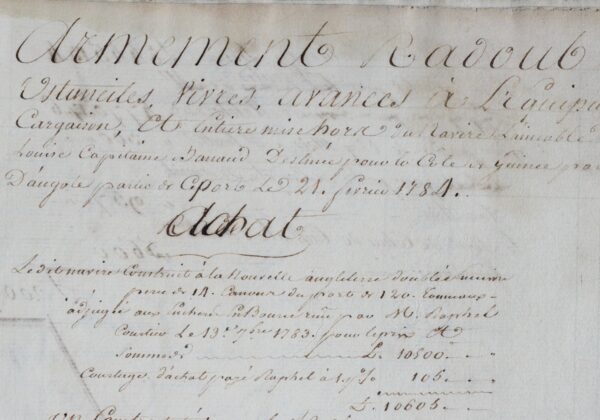 Armement Radoub
Ustanciles, Vivres, avances à L'Equipa
Cargaison, Et Entiere mise hors du Navire L'aimable
Louise Capitaine Banaud Destinée pour la Cote de Guinée
D'angole partie de Ce Port Le 21. fevrier 1784.
Achat
Le dit navire Construit à la Nouvelle angleterre doublé
percé de 14. Canons du port de 120. Tonneaux
adjugé aux Encheres En Bourse par M. Raphel
Courtier Le 13. 7bre 1783. pour le prix Et
Somme de £. 10500. " "
Courtage d'achat payé Raphel à 1 p% 105. " "
£. 10605. "